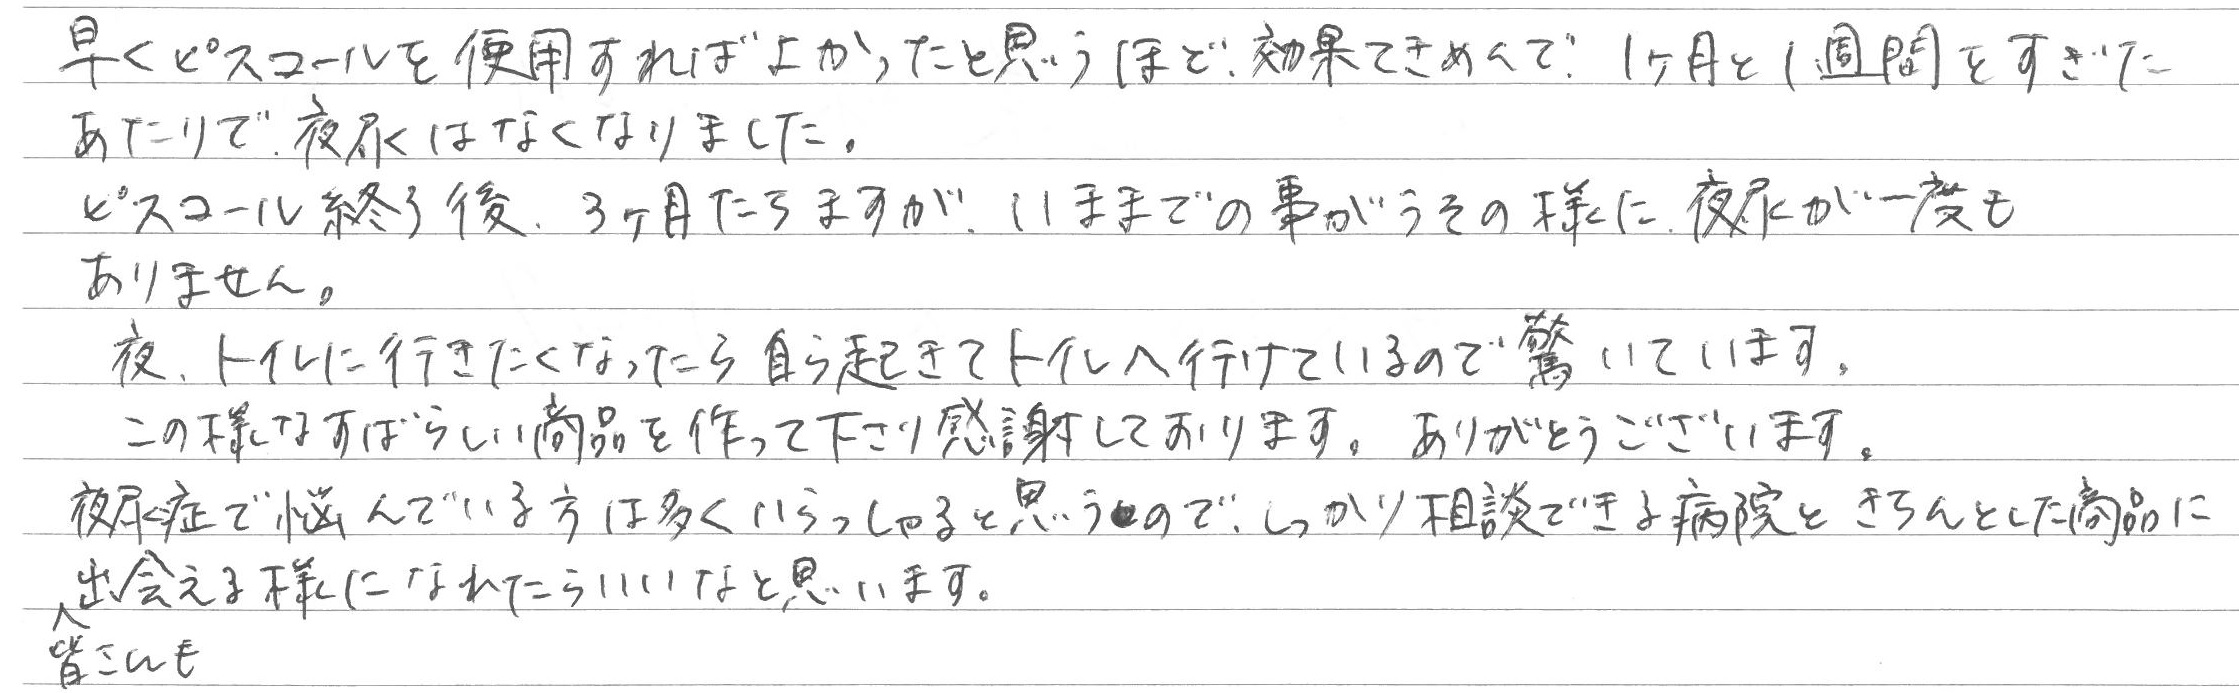 早くピスコールを使用すればよかったと思うほど、効果てきめんで、1ヶ月と1週間をすぎた
あたりで、夜尿はなくなりました。
ピスコール終了後、3ヶ月たちますが、いままでの事がうその様に、夜尿が一度も
ありません。
夜、トイレに行きたくなったら自ら起きてトイレへ行けているので驚いています。
この様なすばらしい商品を作って下さり感謝しております。ありがとうございます。
夜尿症で悩んでいる方は多くいらっしゃると思うので、しっかり相談できる病院ときちんとした商品に
出会える様になれたらいいなと思います。
皆さんも